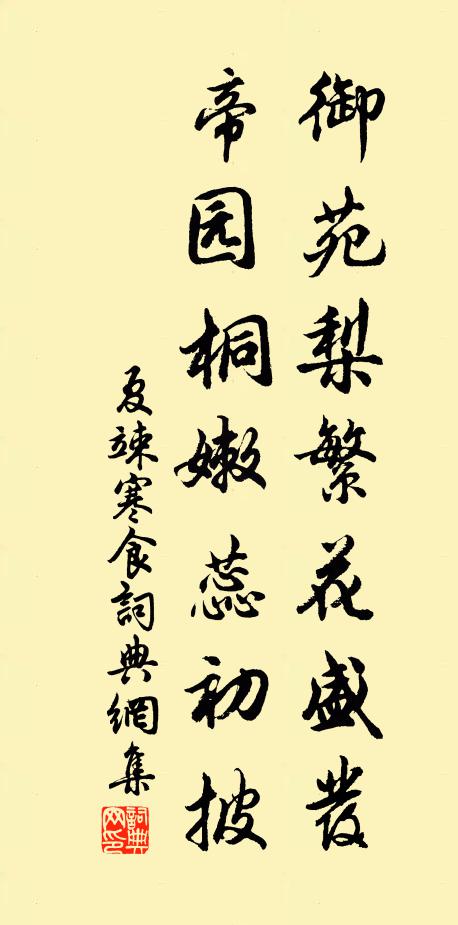 御苑梨繁花盛發
帝园桐嫩蕊初披
夏竦寒食詞典網集
詞典网印